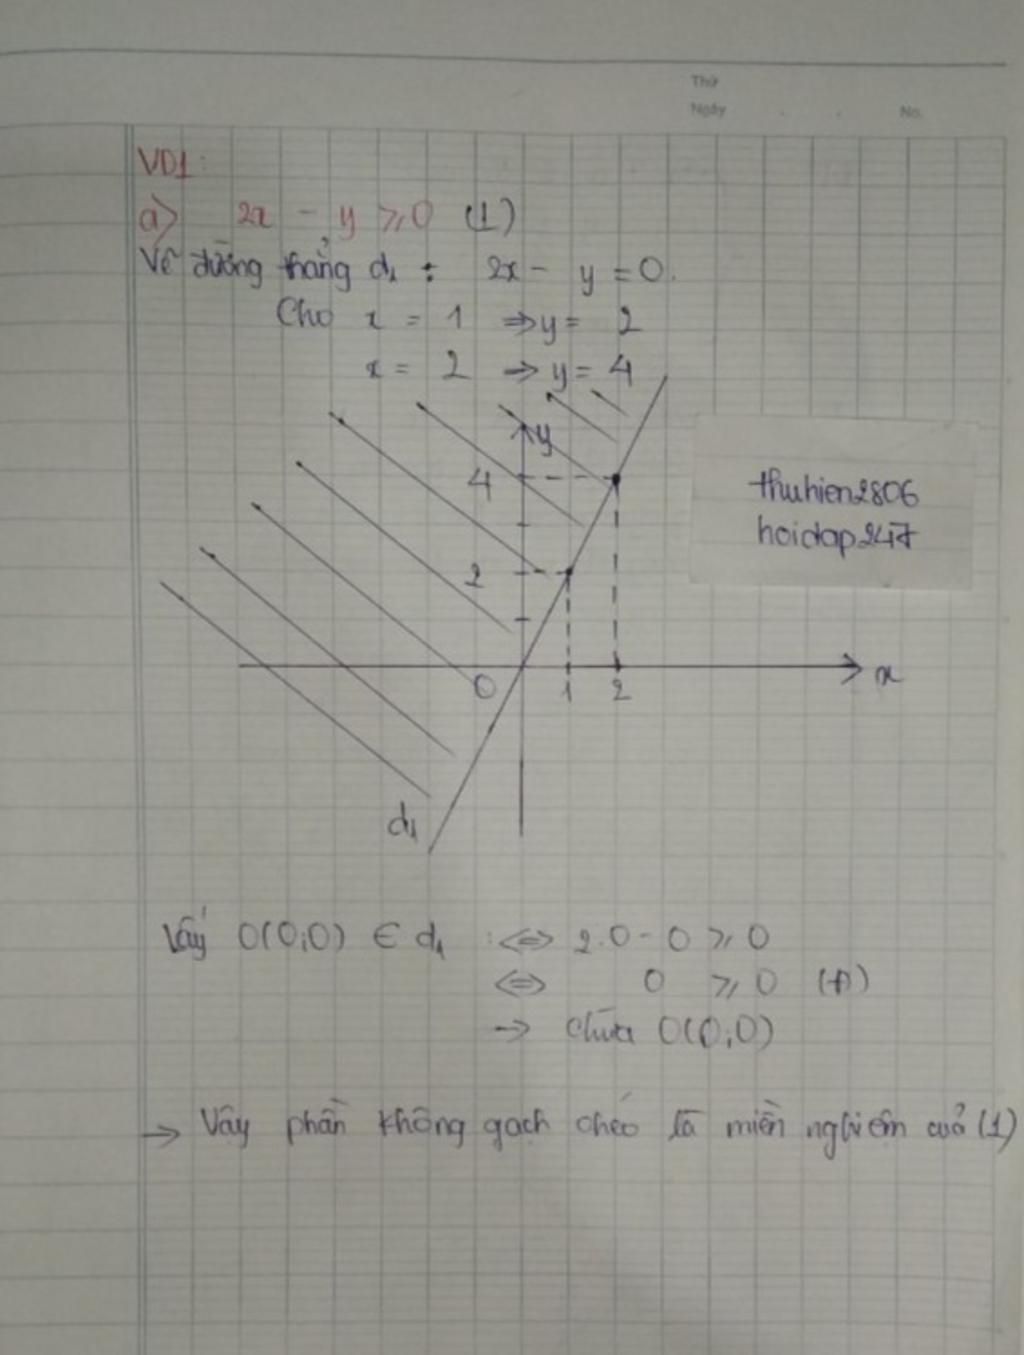 Thứ
Ngày
No.
VD1:
a) 2x - y ⩾ 0 (1)
Vẽ đường thẳng d₁ : 2x - y = 0.
Cho x = 1 ⇒ y = 2
x = 2 → y = 4
y
4
thuhien2806
hoidap247
2
0 1 2 x
d₁
Lấy O(0;0) ∈ d₁ : ⇔ 2.0 - 0 ⩾ 0
⇔ 0 ⩾ 0 (Đ)
→ chứa O(0;0)
→ Vậy phần không gạch chéo là miền nghiệm của (1)